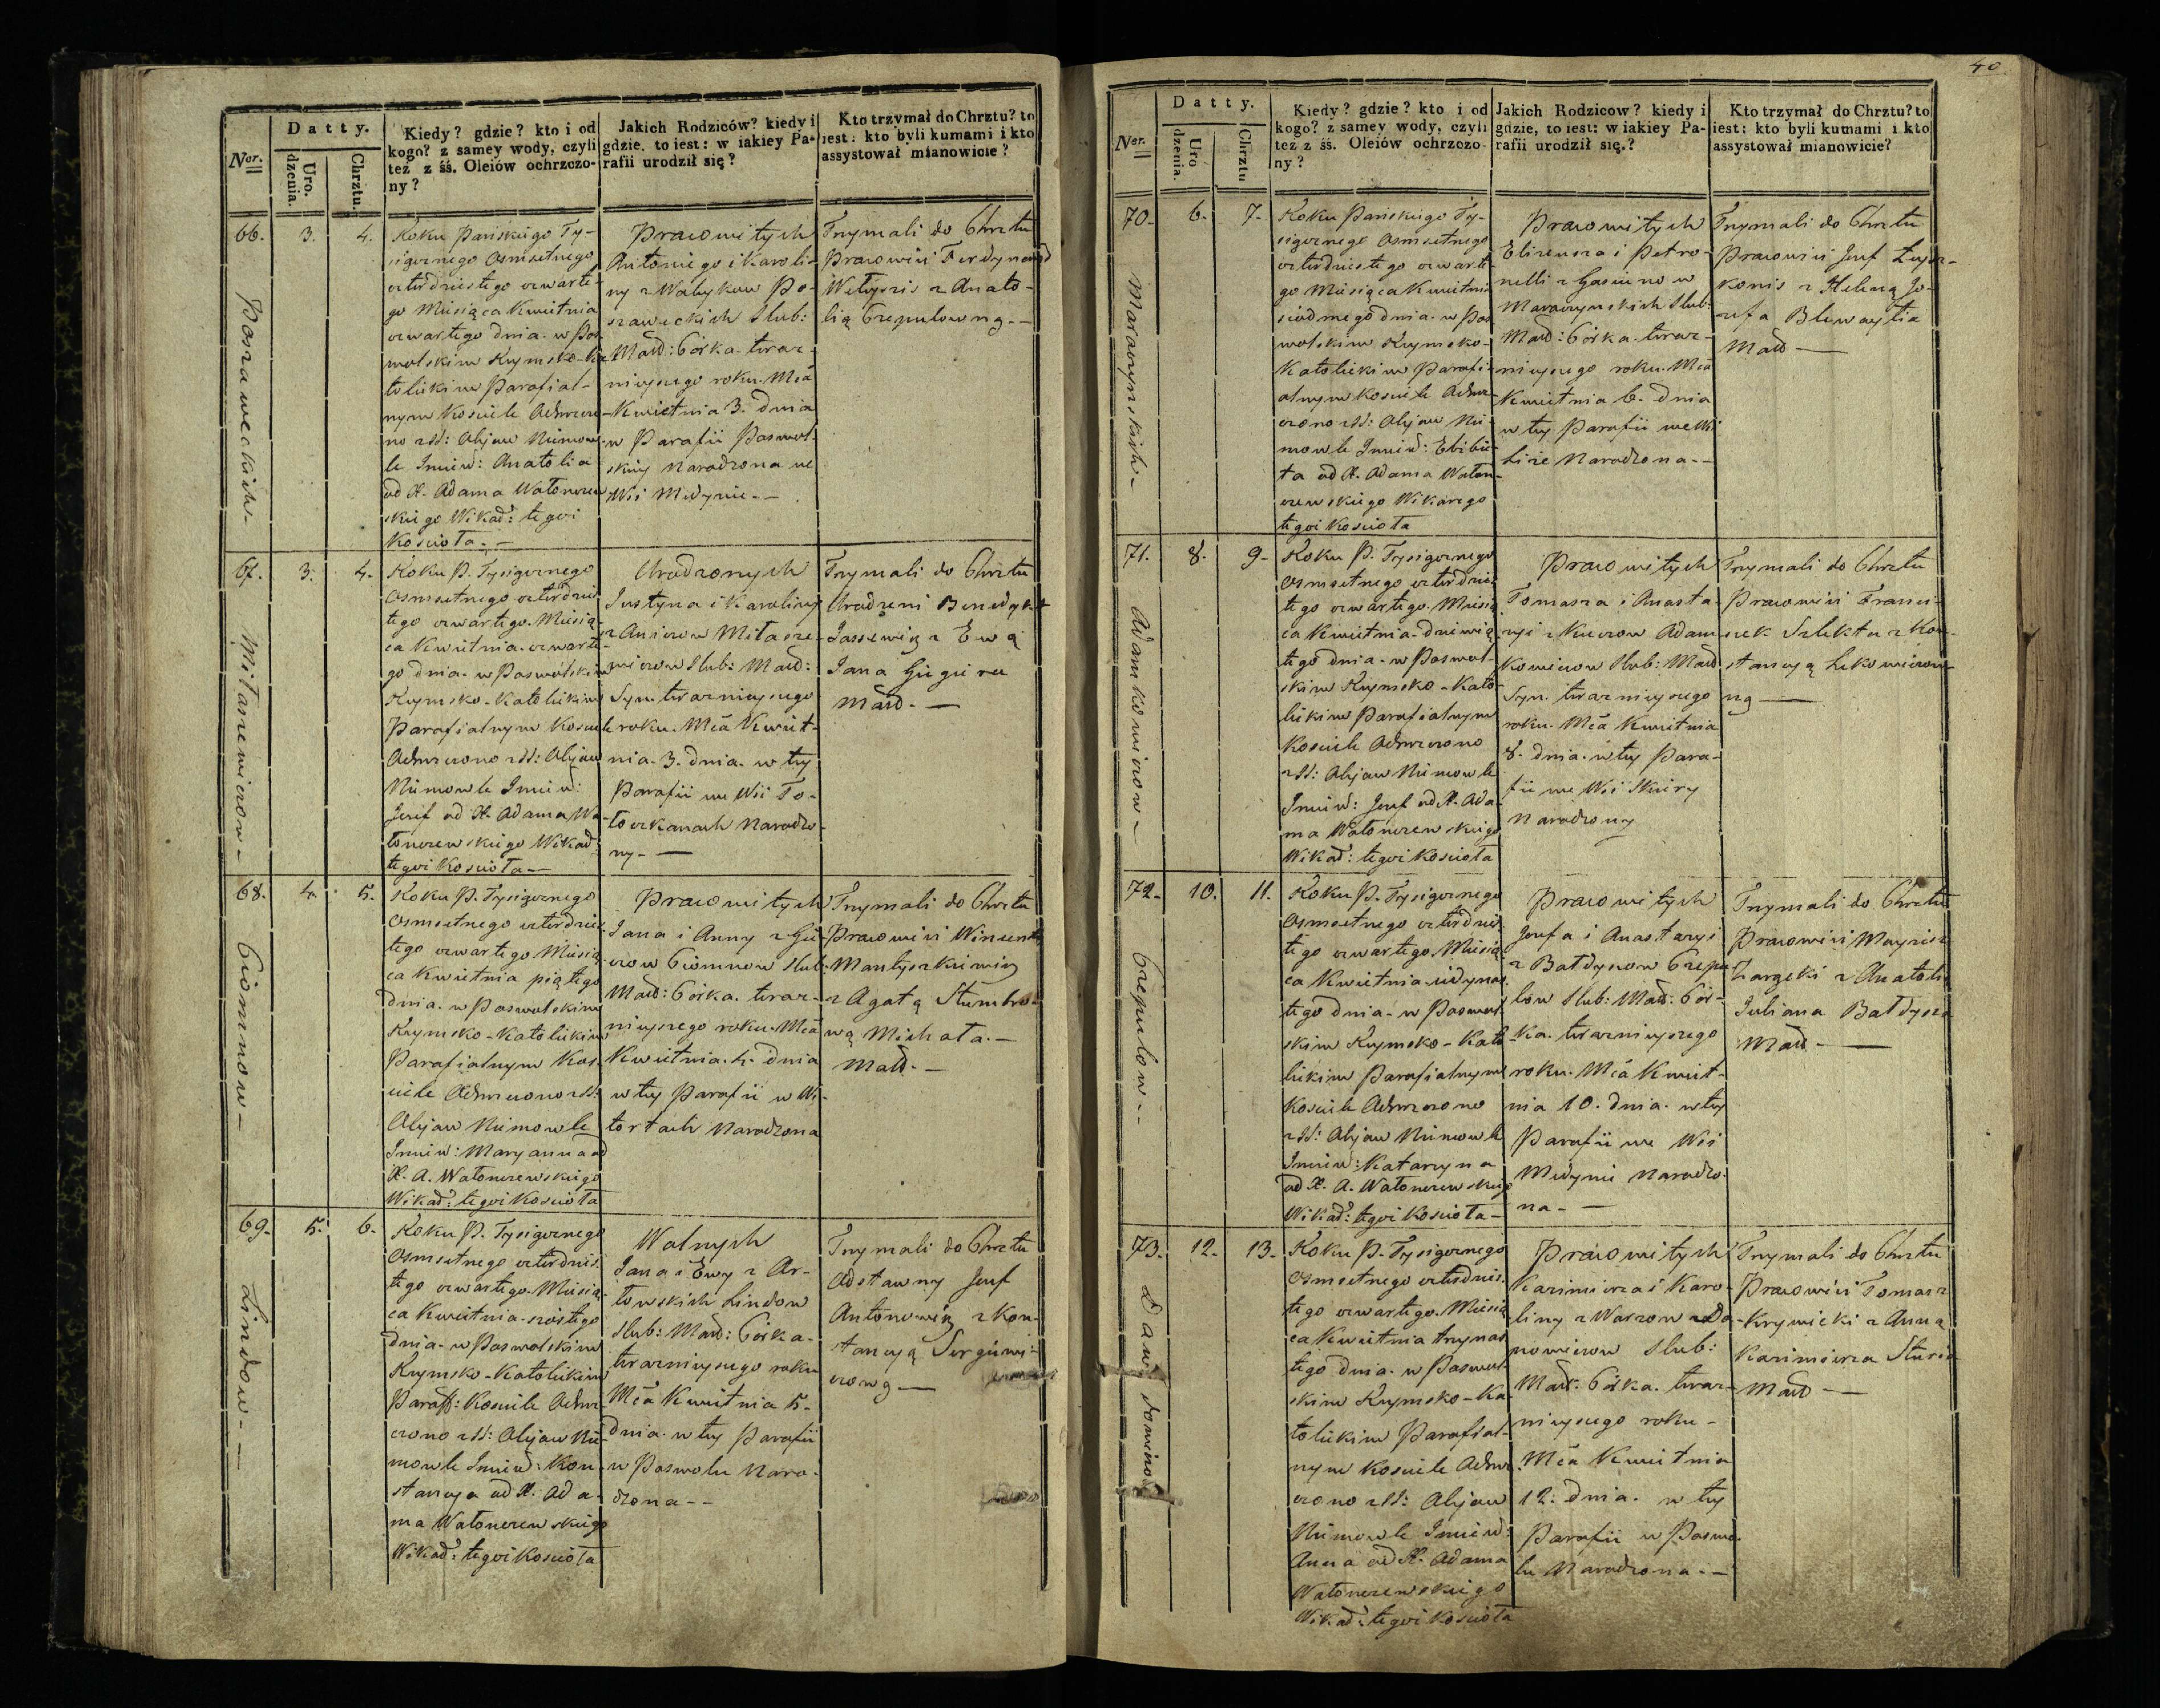 Datty.
Ner.
Uro.
dzenia.
Chrztu.
Kiedy? gdzie? kto i od
kogo? z samey wody, czyli
też z śś. Oleiów ochrzczo-
ny?
Jakich Rodziców? kiedy i
gdzie, to iest: w iakiey Pa-
rafii urodził się?
Kto trzymał do Chrztu? to
iest: kto byli kumami i kto
assystował mianowicie?
66.
3.
4.
Roku Pańskiego Ty-
siącznego Osmsetnego
czterdziestego czwarte-
go Miesiąca Kwietnia
czwartego dnia. w Pos-
wolskim Rzymsko-Ka
tolickim Parafial-
nym Kosciele Ochrzczo-
no z SS: Olejow Niemow-
le Imien: Anatolia
od X. Adama Watonczew
skiego Wikar: tegoż
Kosciola.-
Pracowitych
Antoniego i Karoli-
ny z Watykow Po-
szaweckich Slub:
Małż: Córka. teraz-
nieyszego roku. Mca
Kwietnia 3. dnia
w Parafii Poswol-
skiey Narodzona we
Wsi Medynie.-
Trzymali do Chrztu
Pracowici Ferdynand
z Anato-
lią Czepulowną.-
67.
3.
4.
Mitasiewiczow-
Roku P. Tysiącznego
Osmsetnego czterdzies
tego czwartego. Miesią-
ca Kwietnia. czwarte-
go dnia. w Poswolskim
Rzymsko-Katolickim
Parafialnym Kosciele
Ochrzczono z SS: Olejow
Niemowle Imien:
Jozef od X. Adama Wa-
tonczewskiego Wikar
tegoż Kosciola-
Urodzonych
Justyna i Karoliny
Slub: Małż:
Syn. teraznieyszego
roku. Mca Kwiet-
nia. 3. dnia. w tey
Parafii we Wsi To-
toczkanach Narodzo-
ny.-
Trzymali do Chrztu
Urodzeni Benedykt
Jassewicz z Ewą
Jana
Małż.-
68.
4.
5.
Ciomnow-
Roku P. Tysiącznego
Osmsetnego czterdzies
tego czwartego Miesią
ca Kwietnia piątego
dnia. w Poswolskim
Rzymsko-Katolickim
Parafialnym Kos-
ciele Ochrzczono z SS:
Olejow Niemowle
Imien: Maryanna od
X. A. Watonczewskiego
Wikar: tegoż Kosciola
Pracowitych
Jana i Anny z Gie-
czow Ciomnow Slub:
Małż: Córka. teraz-
nieyszego roku. Mca
Kwietnia. 4. dnia
w tey Parafii w Wi-
tortach Narodzona
Trzymali do Chrztu
Pracowici Wincenty
Mantyszkiewicz
z Agatą Stumbro-
wą Michała.-
Małż.-
69.
5.
6.
Lindow--
Roku P. Tysiącznego
Osmsetnego czterdzies.
tego czwartego. Miesią
ca Kwietnia. szostego
dnia. w Poswolskim
Rzymsko-Katolickim
Paraff: Kosciele Ochrz-
czono z SS: Olejow Nie-
mowle Imien: Kon-
stancya od X. Ada-
ma Watonczewskiego
Wikar: tegoż Kosciola
Wolnych
Jana i Ewy z Ar-
towskich Lindow
Slub: Małż: Córka-
teraznieyszego roku
Mca Kwietnia 5-
dnia. w tey Parafii
w Poswolu Naro-
dzona--
Trzymali do Chrztu
Odstawny Jozef
Antonowicz z Kon-
stancyą Sergiewi-
czową-
40
Datty.
Ner.
Uro
dzenia.
Chrztu
Kiedy? gdzie? kto i od
kogo? z samey wody, czyli
tez z śś. Oleiów ochrzczo-
ny?
Jakich Rodzicow? kiedy i
gdzie, to iest: w iakiey Pa-
rafii urodził się.?
Kto trzymał do Chrztu? to
iest: kto byli kumami i kto
assystował mianowicie?
70.
6.
7.
Marcinynskich-
Roku Pańskiego Ty-
siącznego Osmsetnego
czterdziestego czwarte-
go Miesiąca Kwietnia
siodmego dnia. w Pos
wolskim Rzymsko-
Katolickim Parafi-
alnym Kosciele Ochrz-
czono z SS: Olejow Nie-
mowle Imien: Elżbie-
ta od X. Adama Waton-
czewskiego Wikarego
tegoż Kosciola
Pracowitych
Elizeusza i Petro-
nelli z
Slub:
Małż: Córka. teraz-
nieyszego roku. Mca
Kwietnia 6. dnia
w tey Parafii we Wsi
Narodzona.-
Trzymali do Chrztu
Pracowici Jozef
z Heleną Jo-
zefa
Małż-
71.
8.
9.
Adamkowiczow-
Roku P. Tysiącznego
Osmsetnego czterdzies
tego czwartego. Miesią
ca Kwietnia. dziewią
tego dnia. w Poswol-
skim Rzymsko-Kato-
lickim Parafialnym
Kosciele Ochrzczono
z SS: Olejow Niemowle
Imien: Jozef od X. Ada-
ma Watonczewskiego
Wikar: tegoż Kosciola
Pracowitych
Tomasza i Anasta-
zyi z Kuczow Adam
kowiczow Slub: Małż
Syn. teraznieyszego
roku. Mca Kwietnia
8. dnia. w tey Para-
fii we Wsi Skiery
Narodzony
Trzymali do Chrztu
Pracowici Franci-
szek Szlekta z Kon-
stancyą Lekowiczow-
ną-
72.
10.
11.
Czepulow--
Roku P. Tysiącznego
Osmsetnego czterdzies
tego czwartego. Miesią
ca Kwietnia. iedynas
tego dnia. w Poswol
skim Rzymsko-Kato
lickim Parafialnym
Kosciele Ochrzczono
z SS: Olejow Niemowle
Imien: Katarzyna
od X. A. Watonczewskiego
Wikar: tegoż Kosciola-
Pracowitych
Jozefa i Anastazyi
z Bałdyzow Czepu
low Slub: Małż: Cór-
ka. teraznieyszego
roku. Mca Kwiet-
nia 10. dnia. w tey
Parafii we Wsi
Medynie Narodzo-
na.-
Trzymali do Chrztu
Pracowici
z Anatolią
Juliana Bałdyza
Małż-
73.
12.
13.
Dawidowiczow
Roku P. Tysiącznego
Osmsetnego czterdzies.
tego czwartego. Miesią
ca Kwietnia trzynas
tego dnia. w Poswol-
skim Rzymsko-Ka-
tolickim Parafial-
nym Kosciele Ochrz-
czono z SS: Olejow
Niemowle Imien:
Anna od X. Adama
Watonczewskiego
Wikar: tegoż Kosciola
Pracowitych
Kazimierza i Karo-
liny z
Slub:
Małż: Córka. teraz-
nieyszego roku-
Mca Kwietnia
12. dnia. w tey
Parafii w Poswo-
lu Narodzona.-
Trzymali do Chrztu
Pracowici Tomasz
Krywicki z Anną
Kazimierza
Małż-